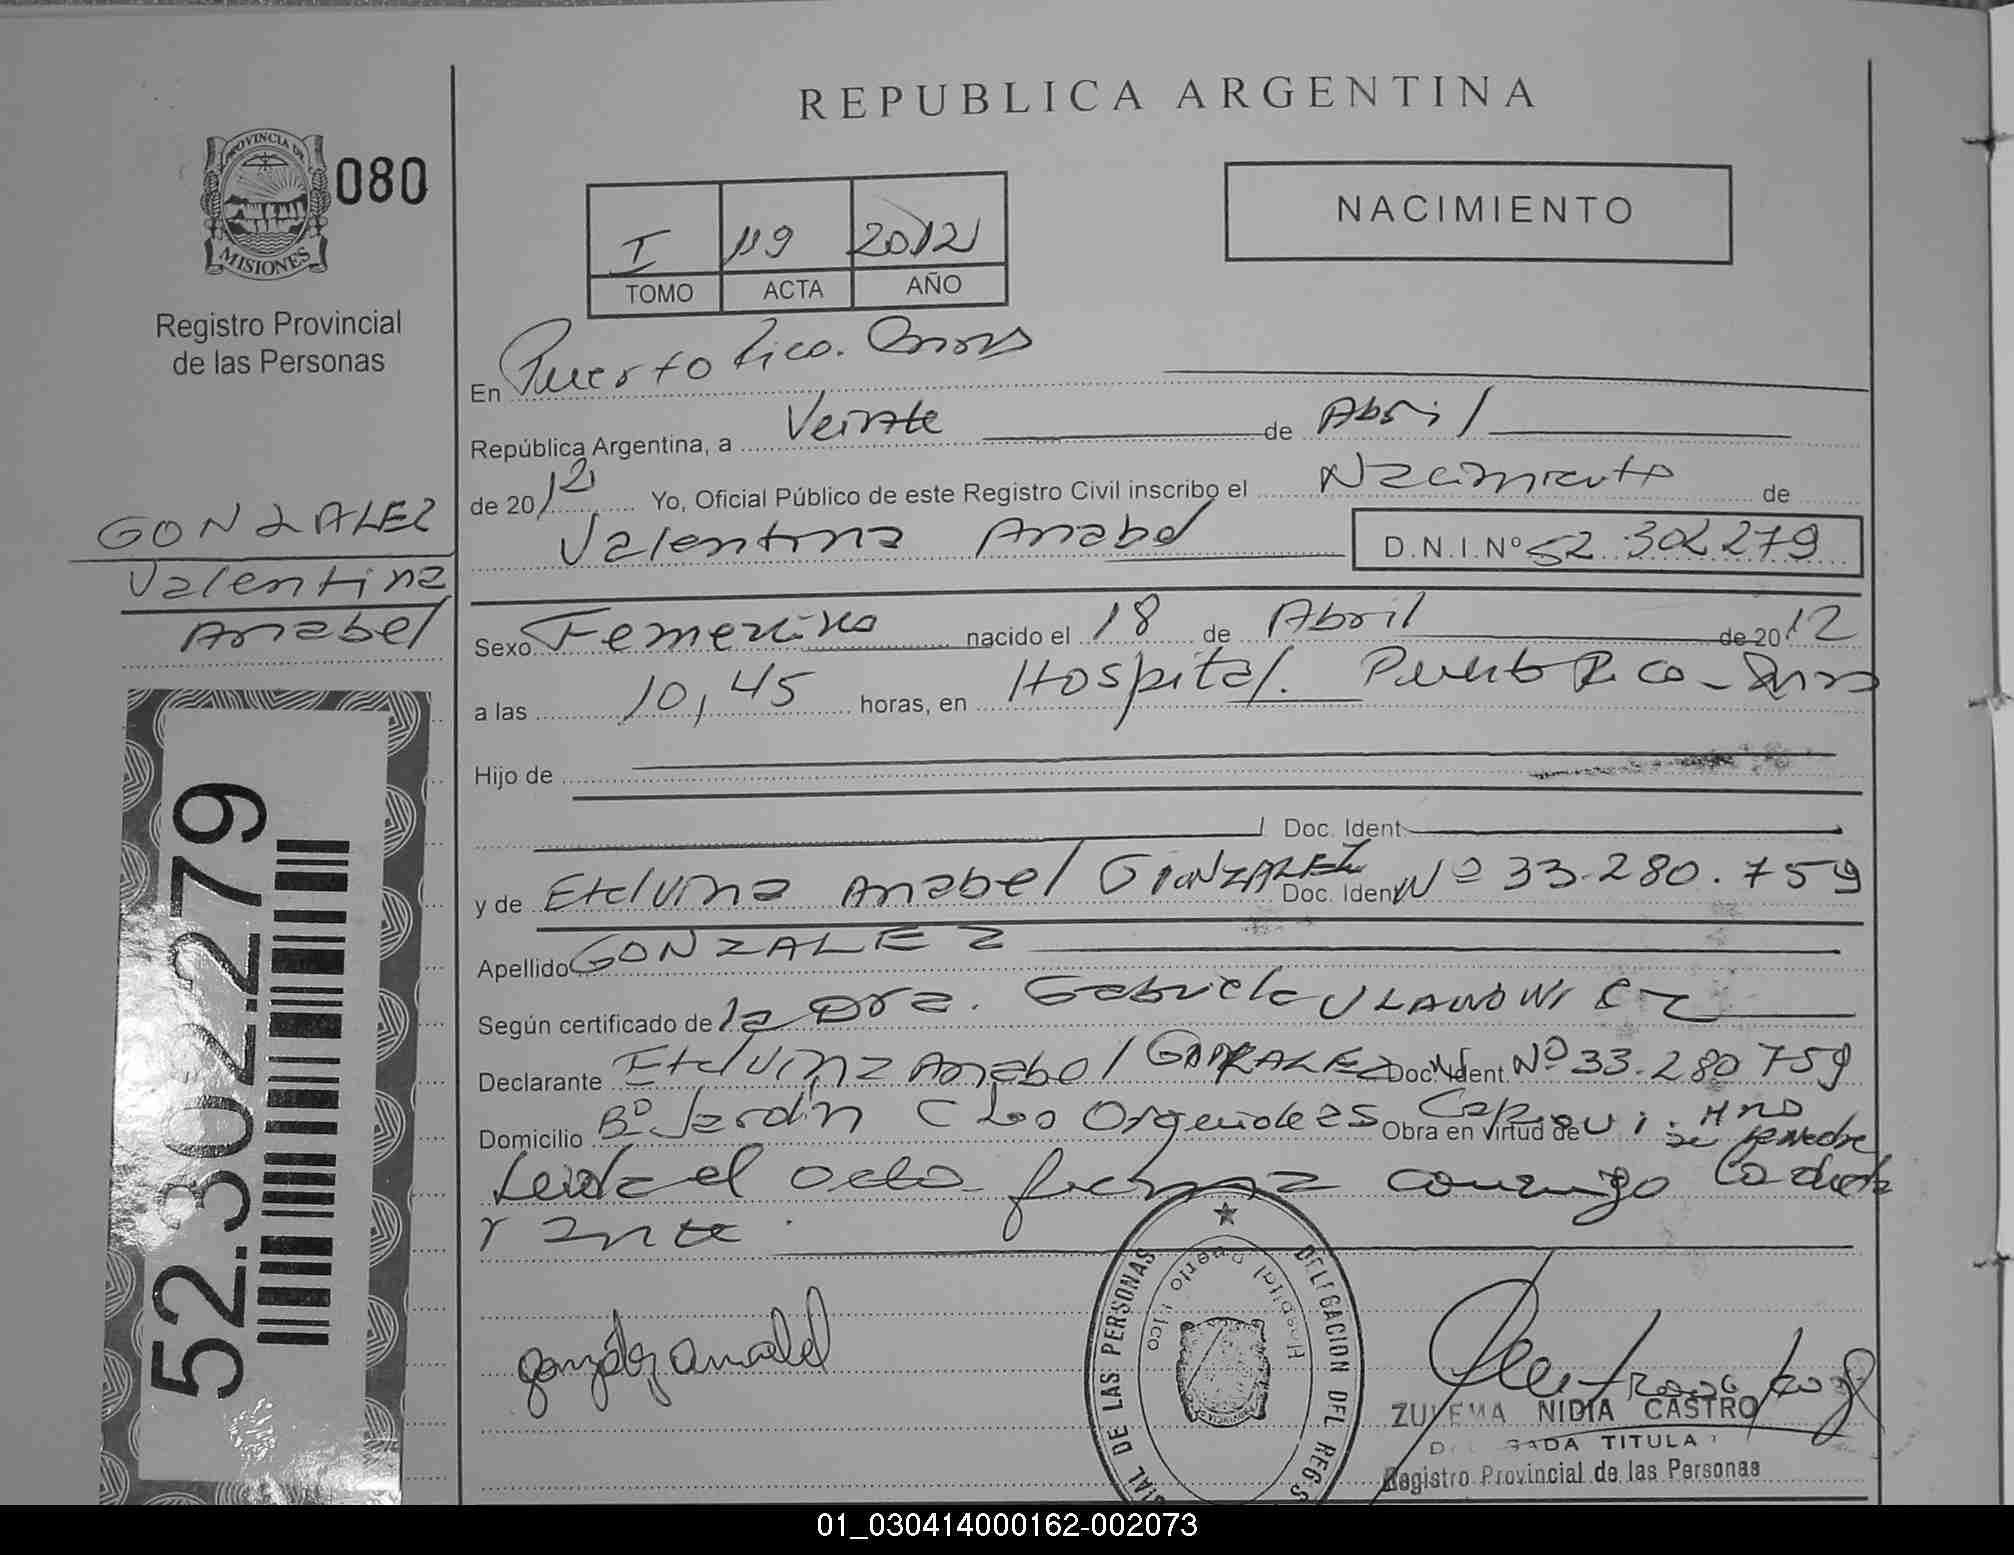 REPUBLICA ARGENTINA
PROVINCIA DE
MISIONES
080
Registro Provincial
de las Personas
I 119 2012
TOMO ACTA AÑO
NACIMIENTO
En Puerto Rico.
República Argentina, a Veinte de Abril
de 2012 Yo, Oficial Público de este Registro Civil inscribo el Nacimiento de
Valentina Anabel D.N.I.Nº 52.302279
GONZALEZ
Valentina
Anabel
Sexo Femenino nacido el 18 de Abril de 2012
a las 10,45 horas, en Hospital. Puerto Rico -
Hijo de
Doc. Ident
y de Etelvina Anabel GONZALEZ Doc. Ident Nº 33.280.759
Apellido GONZALEZ
Según certificado de la Dra. Gabriela
Declarante Etelvina Anabel GONZALEZ Doc. Ident Nº 33.280759
Domicilio Bº Jardin Orquideas Capiovi. Mnes Obra en virtud de
el acta firma conmigo
Y ante.
gonzález anabel
DELEGACION DEL
DE LAS PERSONAS
Hospital Puerto Rico
ZULEMA NIDIA CASTRO
TITULA
Registro Provincial de las Personas
52.302.279
01_030414000162-002073